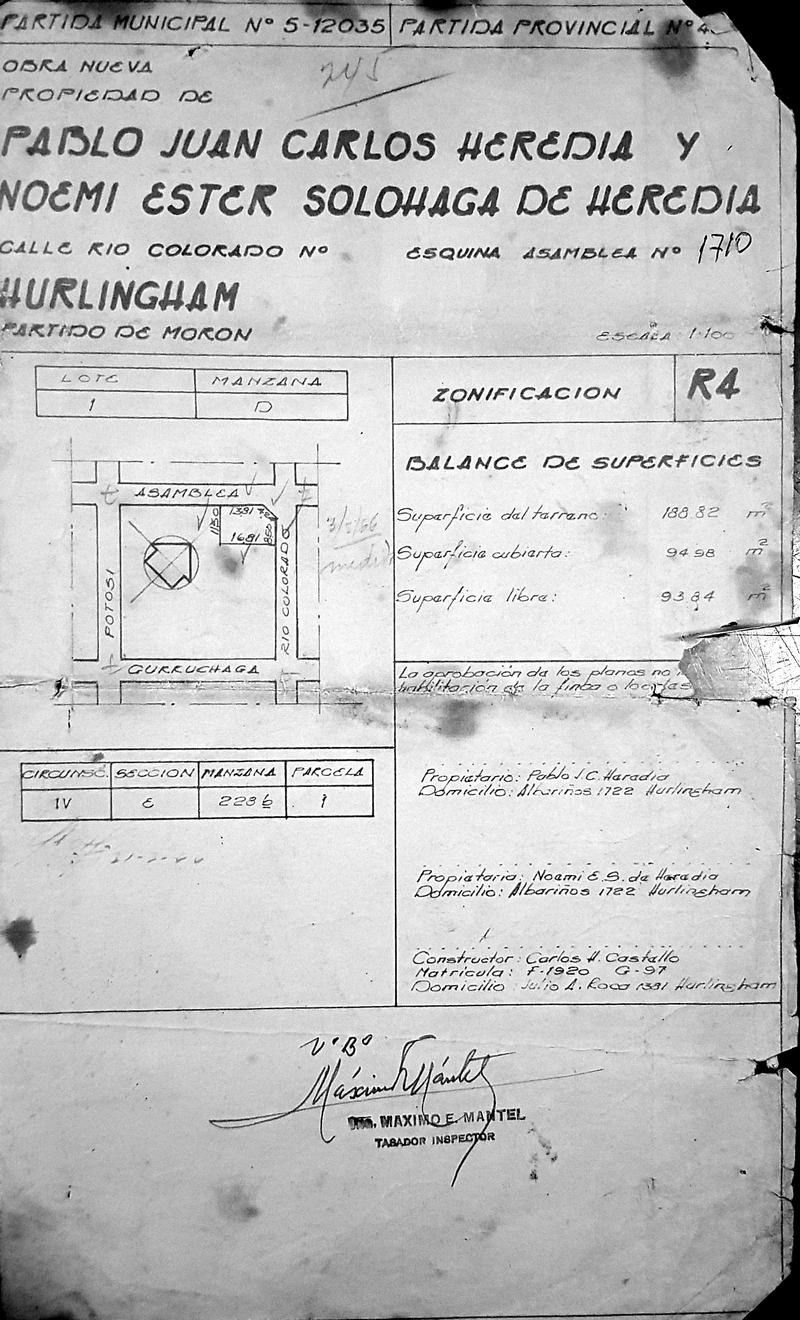 PARTIDA MUNICIPAL Nº 5-12035 PARTIDA PROVINCIAL Nº 4
OBRA NUEVA
245
PROPIEDAD DE
PABLO JUAN CARLOS HEREDIA Y
NOEMI ESTER SOLOHAGA DE HEREDIA
CALLE RIO COLORADO Nº ESQUINA ASAMBLEA Nº 1710
HURLINGHAM
PARTIDO DE MORON
ESCALA 1:100
LOTE MANZANA
1 D
ZONIFICACION R4
ASAMBLEA
1391
1150
850
1681
POTOSI
RIO COLORADO
GURRUCHAGA
BALANCE DE SUPERFICIES
Superficie del terreno: 188.82 m²
Superficie cubierta: 94.98 m²
Superficie libre: 93.84 m²
La aprobación de los planos no
habilitación de la finca o locales
CIRCUNSC. SECCION MANZANA PARCELA
IV E 228b 1
Propietario: Pablo J.C. Heredia
Domicilio: Albariños 1722 Hurlingham
Propietaria: Noemi E.S. de Heredia
Domicilio: Albariños 1722 Hurlingham
Constructor: Carlos H. Castello
Matrícula: F-1920 G-97
Domicilio: Julio A. Roca 1391 Hurlingham
Vº Bº
MAXIMO E. MANTEL
TASADOR INSPECTOR